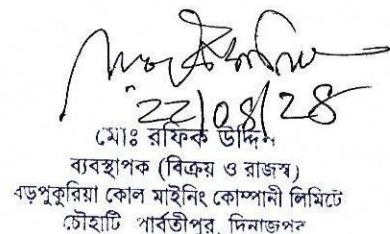 22/08/24
মোঃ রফিক উদ্দিন
ব্যবস্থাপক (বিক্রয় ও রাজস্ব)
বড়পুকুরিয়া কোল মাইনিং কোম্পানী লিমিটে
চৌহাটি পার্বতীপুর, দিনাজপুর